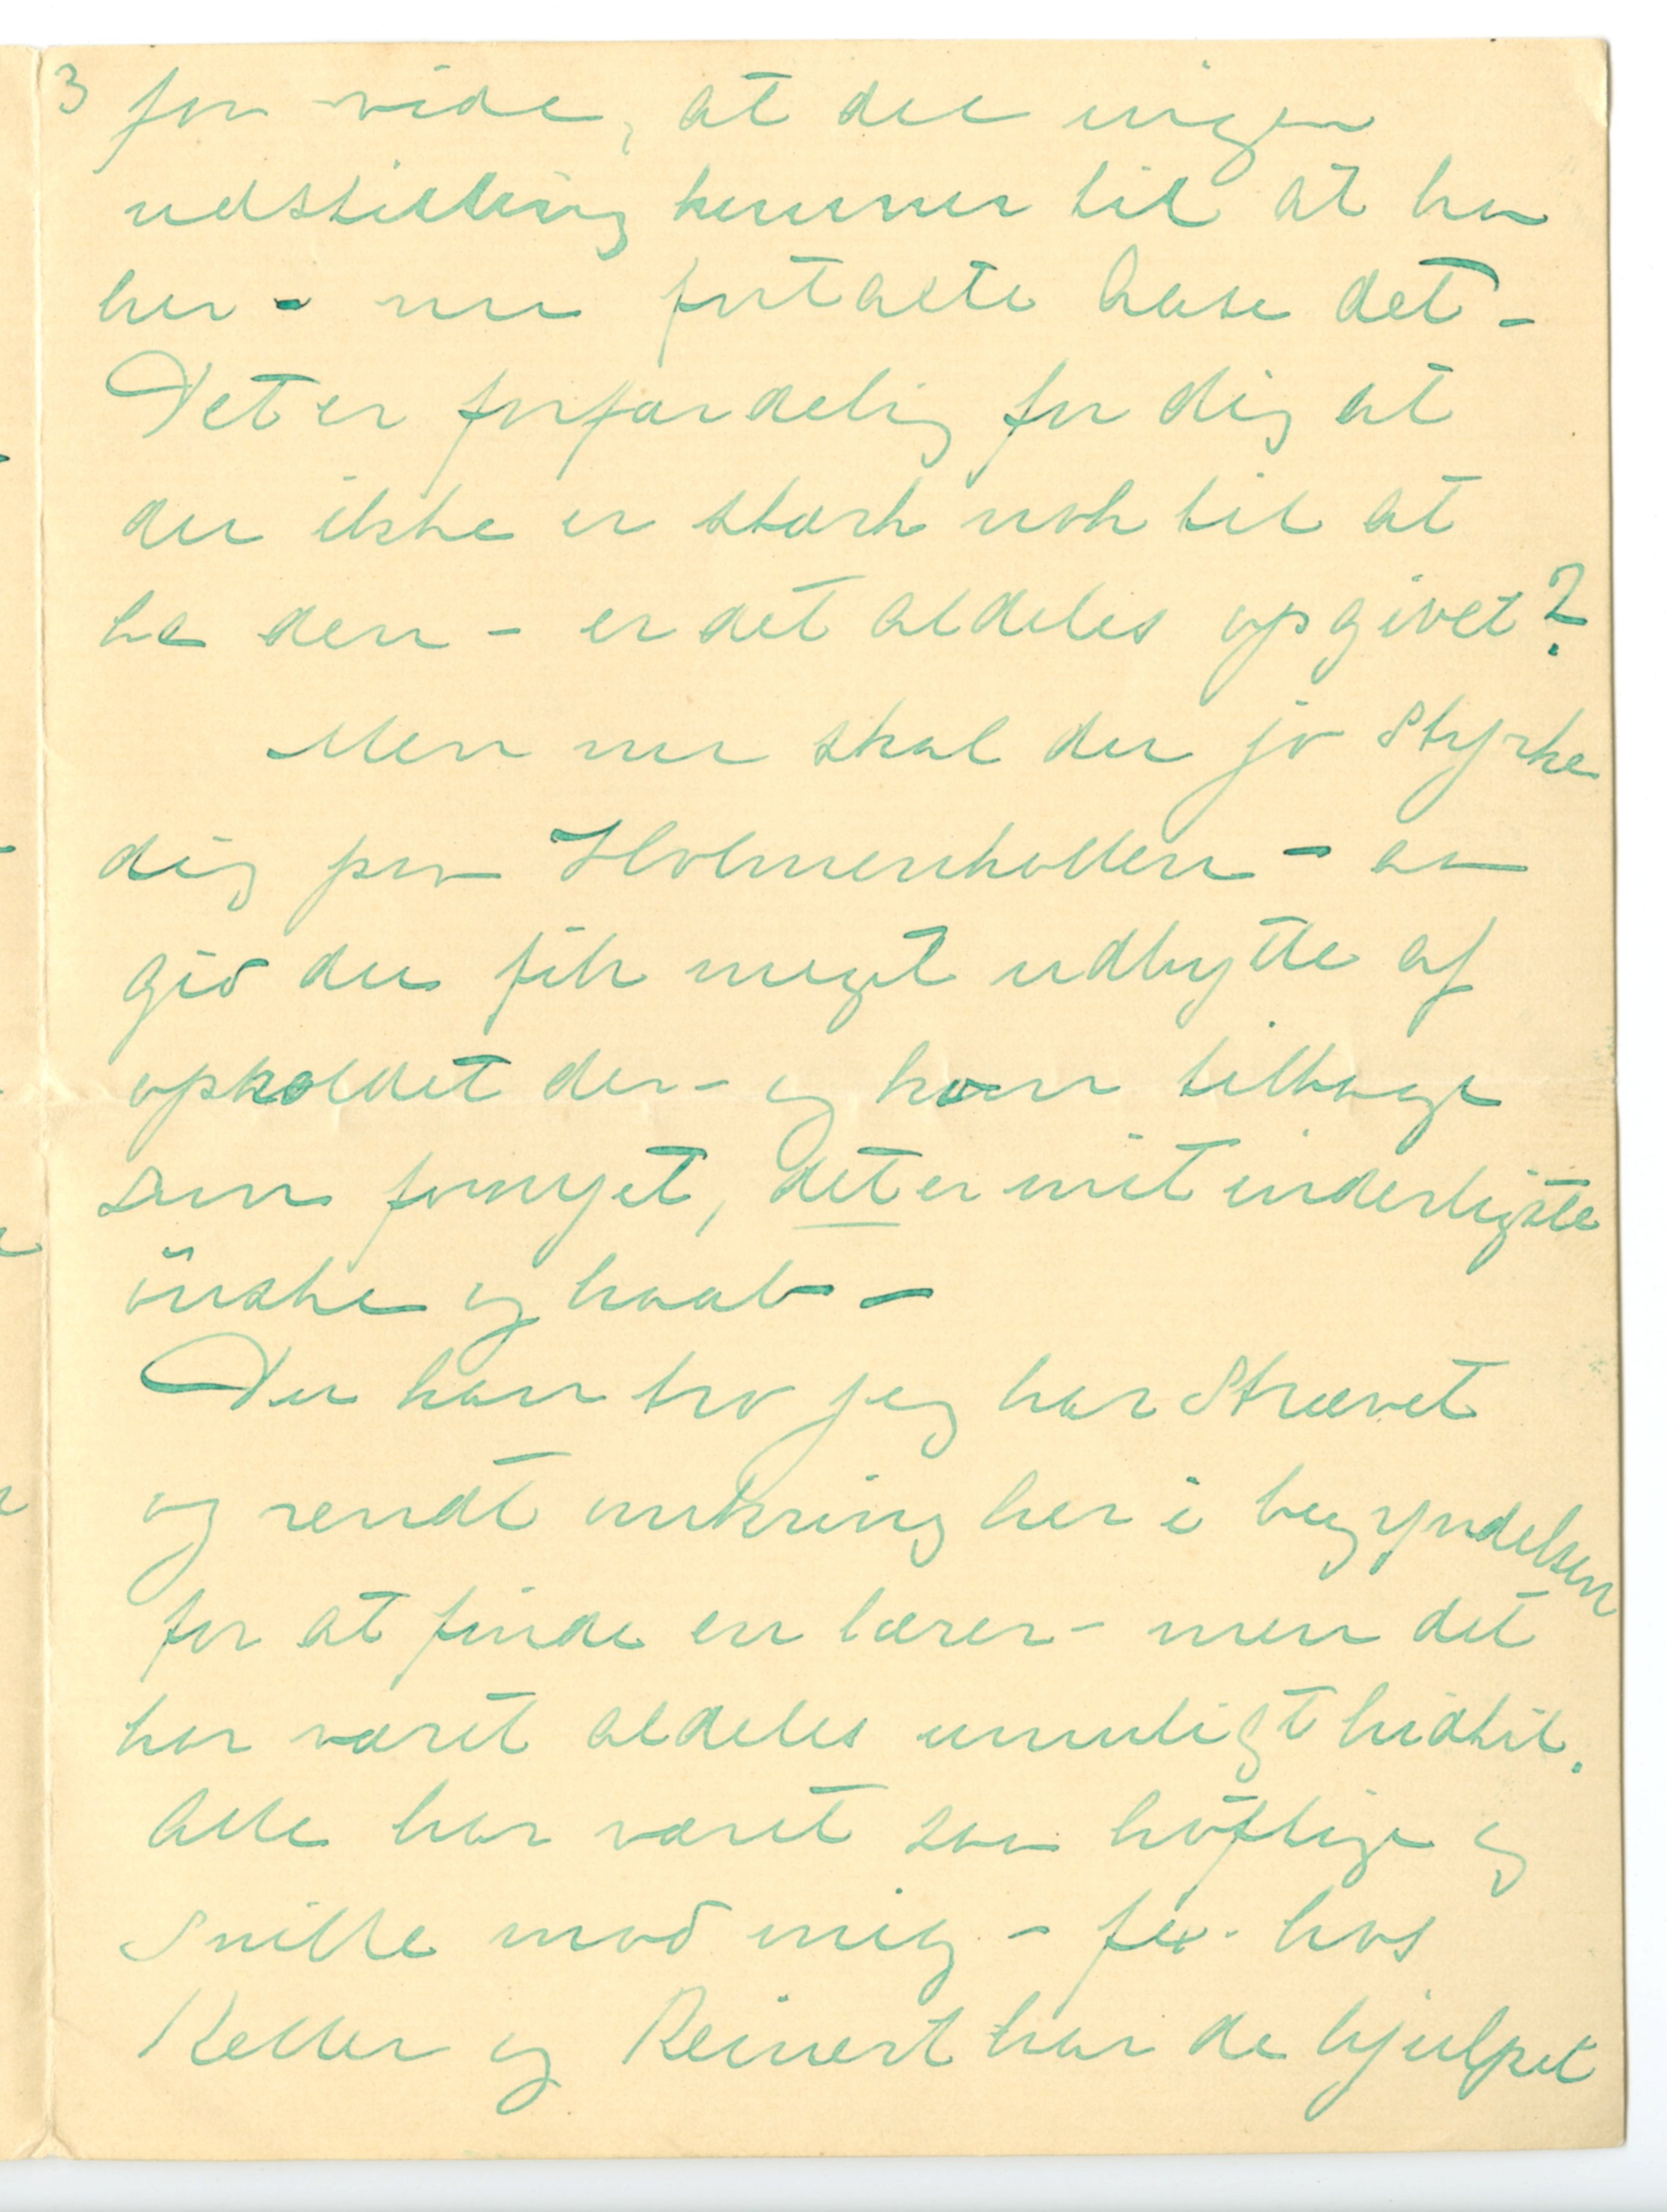 3 faa vide, at du ingen
udstilling kommer til at ha
her - nu fortalte Aase det -
Det er forfærdelig for dig at
du ikke er stærk nok til at
ha den - er det aldeles opgivet?
Men nu skal du jo styrke
dig paa Holmenkollen - aa
gid du fik meget udbytte af
opholdet der - og kom tilbage
som fornyet, det er mit inderligste
önske og haab -
Du kan tro jeg har strævet
og rendt omkring her i begyndelsen
for at finde en lærer - men det
har været aldeles umuligt hidtil.
Alle har været saa höflige og
snille mod mig - fex. hos
Keller og Reinert har de hjulpet